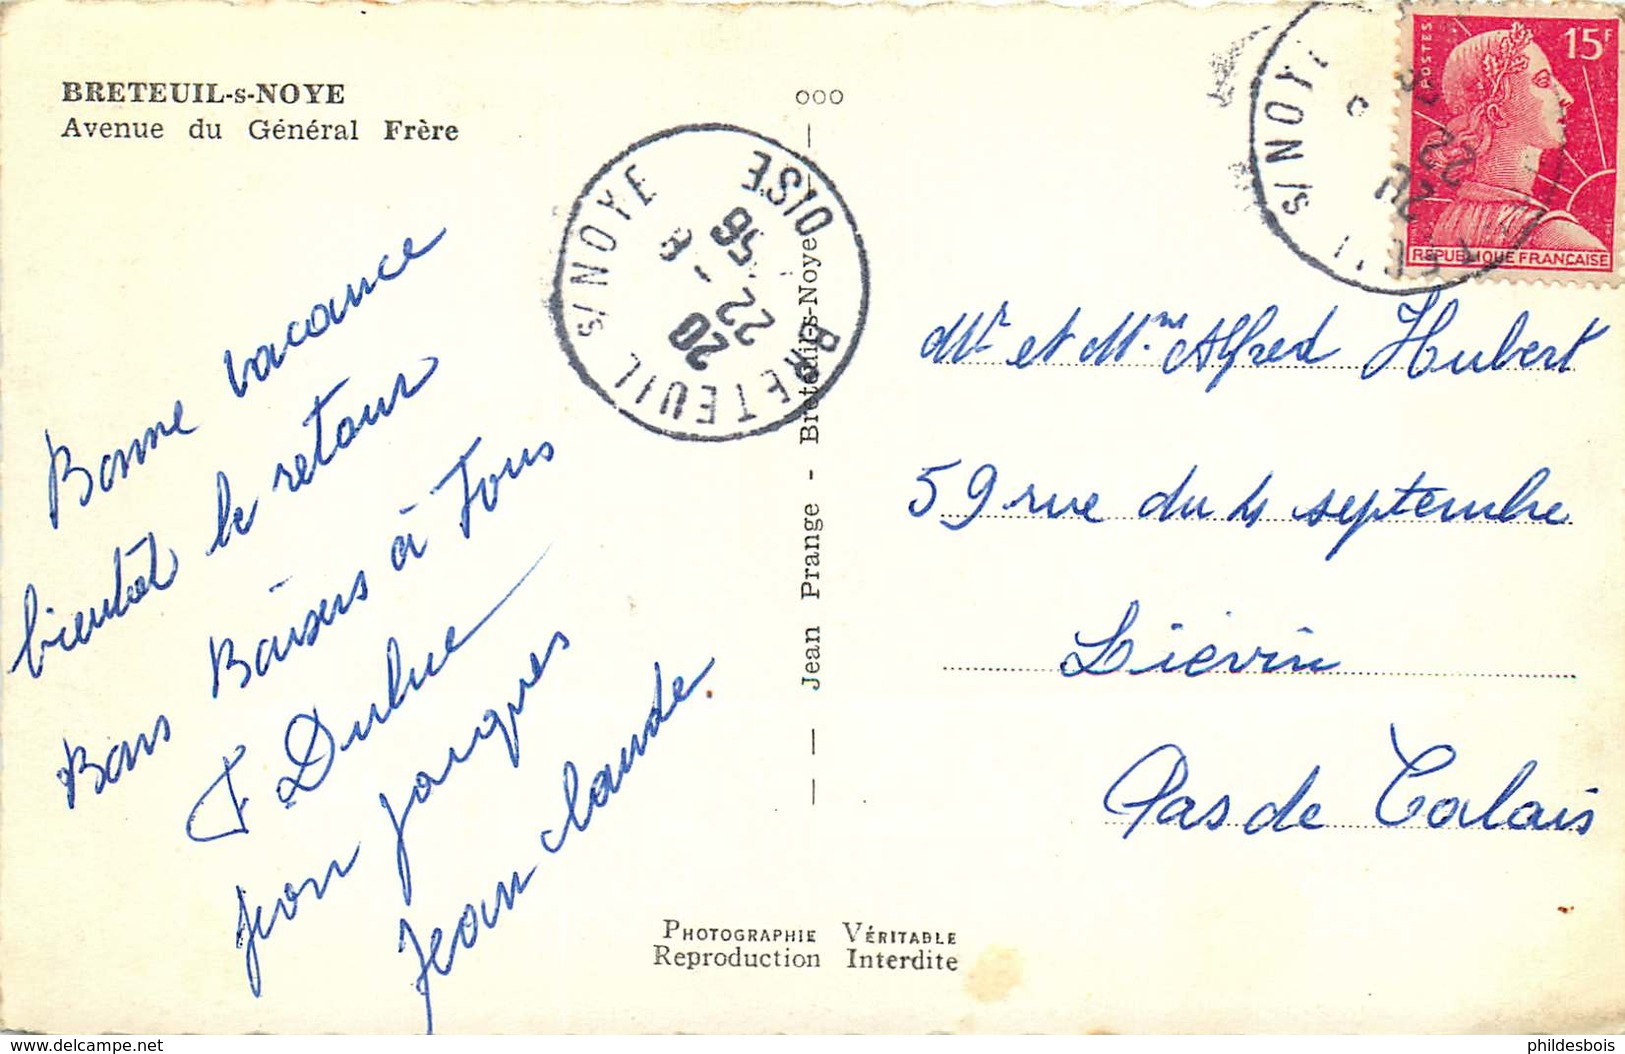 BRETEUIL-s-NOYE
Avenue du Général Frère
Bonne vacance
bientôt le retour
Bons Baisers à Tous
F Duhue
jean jacques
jean claude.
OOO
— Jean Prange - Breteuil-s-Noye —
BRETEUIL s/ NOYE
OISE
20
22 - 8
56
s/ NOYE
22
POSTES
15F
REPUBLIQUE FRANÇAISE
Mr et Mme Alfred Hubert
59 rue du 4 septembre
Liévin
Pas de Calais
PHOTOGRAPHIE VÉRITABLE
Reproduction Interdite
delcampe.net
phildesbois